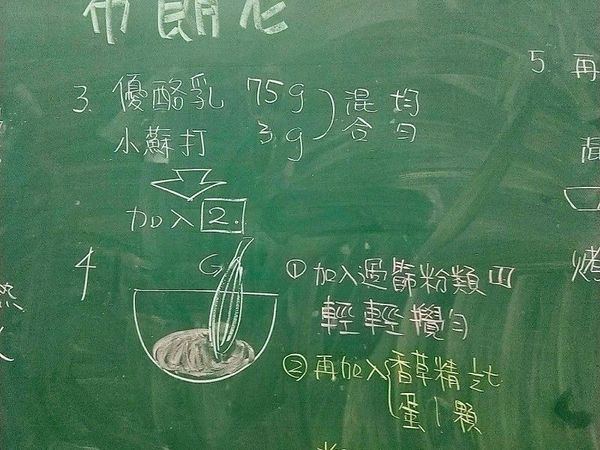 布朗尼
3. 優酪乳 75g
小蘇打 3g
混合
均勻
加入 2.
4
① 加入過篩粉類
輕輕攪勻
② 再加入 香草精 ½t
蛋 1顆
5. 再
烤